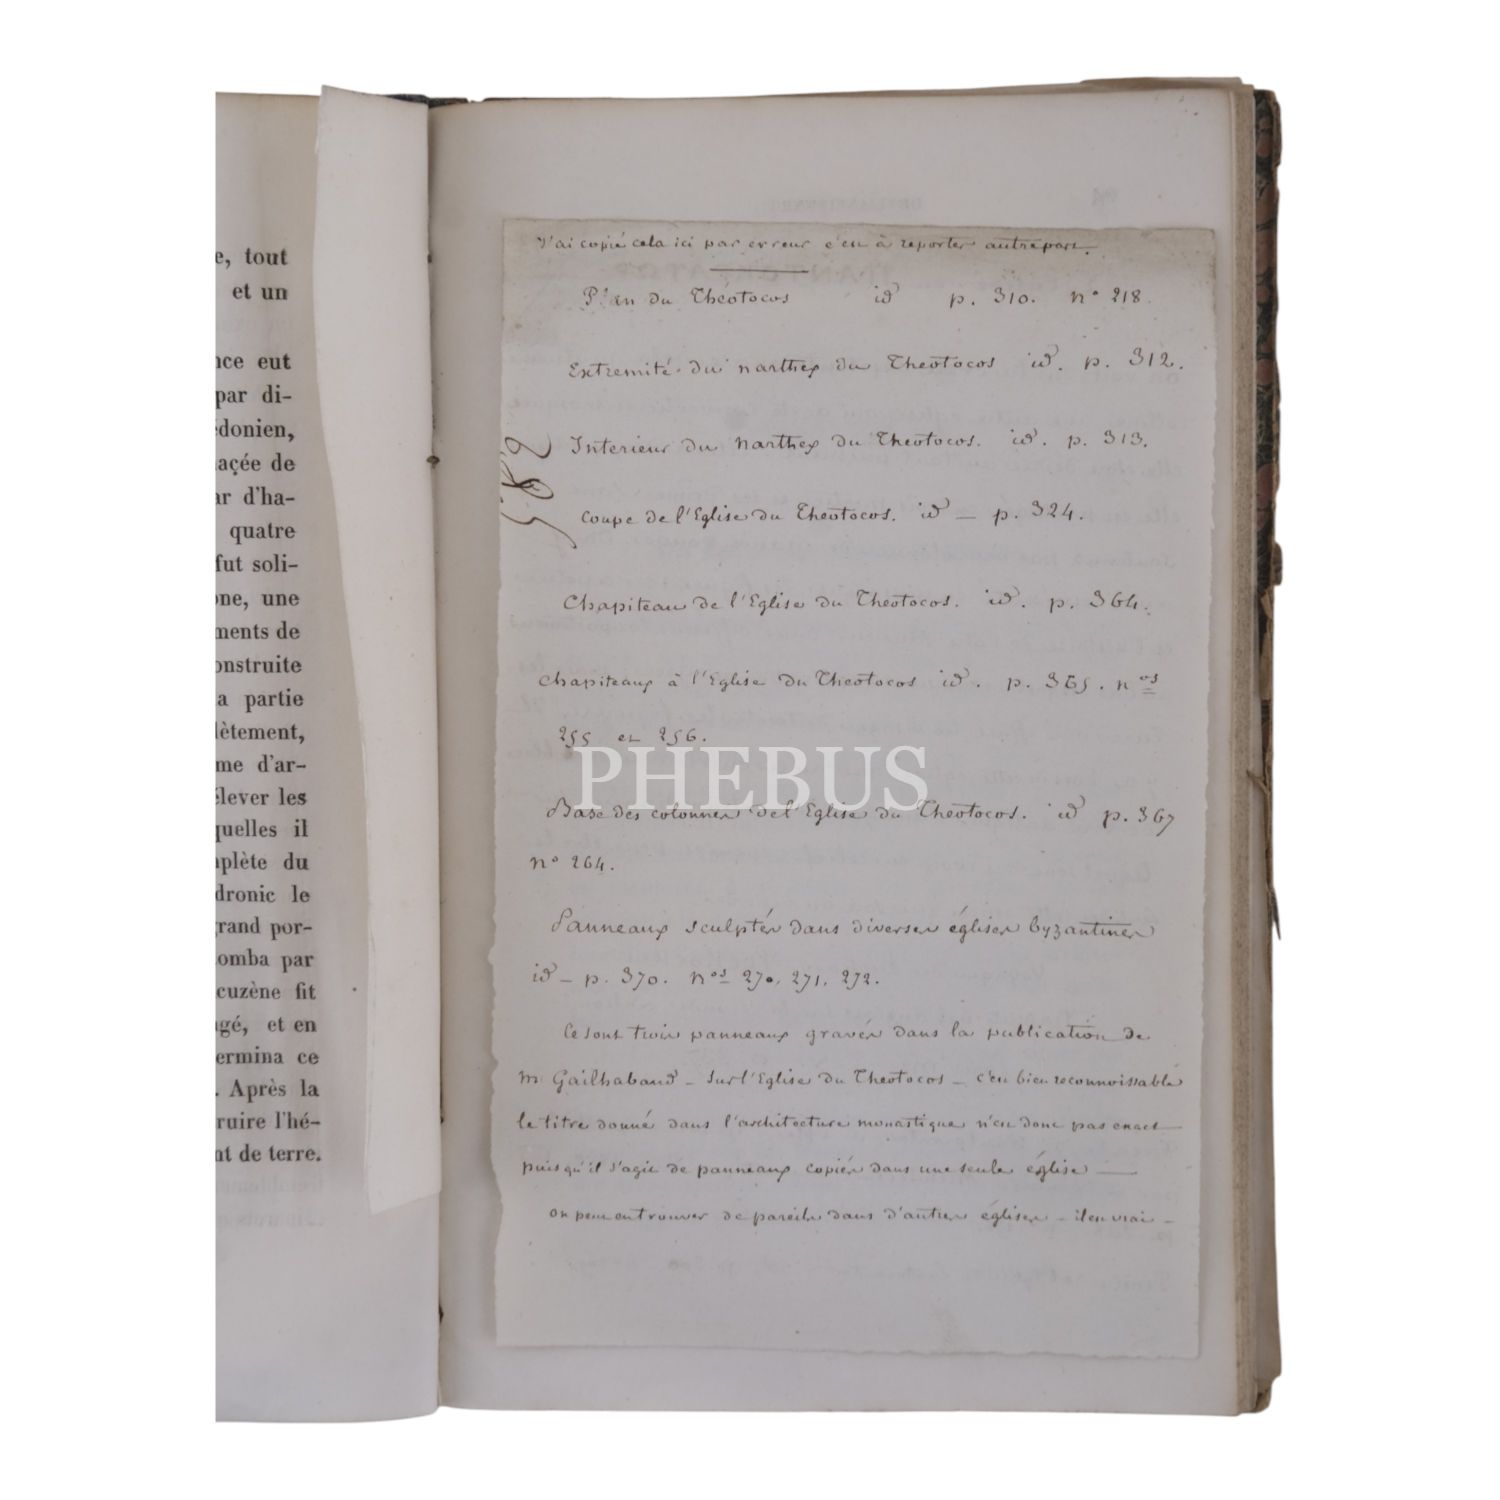 e, tout
et un
nce eut
par di-
édonien,
açée de
ar d'ha-
quatre
fut soli-
one, une
ments de
onstruite
a partie
lètement,
me d'ar-
élever les
quelles il
nplète du
dronic le
grand por-
omba par
cuzène fit
agé, et en
ermina ce
. Après la
ruire l'hé-
nt de terre.
J'ai copié cela ici par erreur c'est à reporter autrepart.
Plan du Théotocos id p. 310. n° 218.
Extremité du narthex du Theotocos id. p. 312.
Interieur du Narthex du Theotocos. id. p. 313.
Coupe de l'Eglise du Theotocos. id — p. 324.
Chapiteau de l'Eglise du Theotocos. id. p. 364.
Chapiteaux à l'Eglise du Theotocos id. p. 365. nos
255 et 256.
PHEBUS
Base des colonnes de l'Eglise du Theotocos. id p. 367
n° 264.
Panneaux sculptés dans diverses églises byzantines
id — p. 370. nos 270, 271, 272.
Ce sont trois panneaux gravés dans la publication de
m Gailhabaud — sur l'Eglise du Theotocos — c'est bien reconnoissable
le titre donné dans l'architecture monastique n'est donc pas exact
puisqu'il s'agit de panneaux copiés dans une seule église —
on peut en trouver de pareils dans d'autres églises — il est vrai —